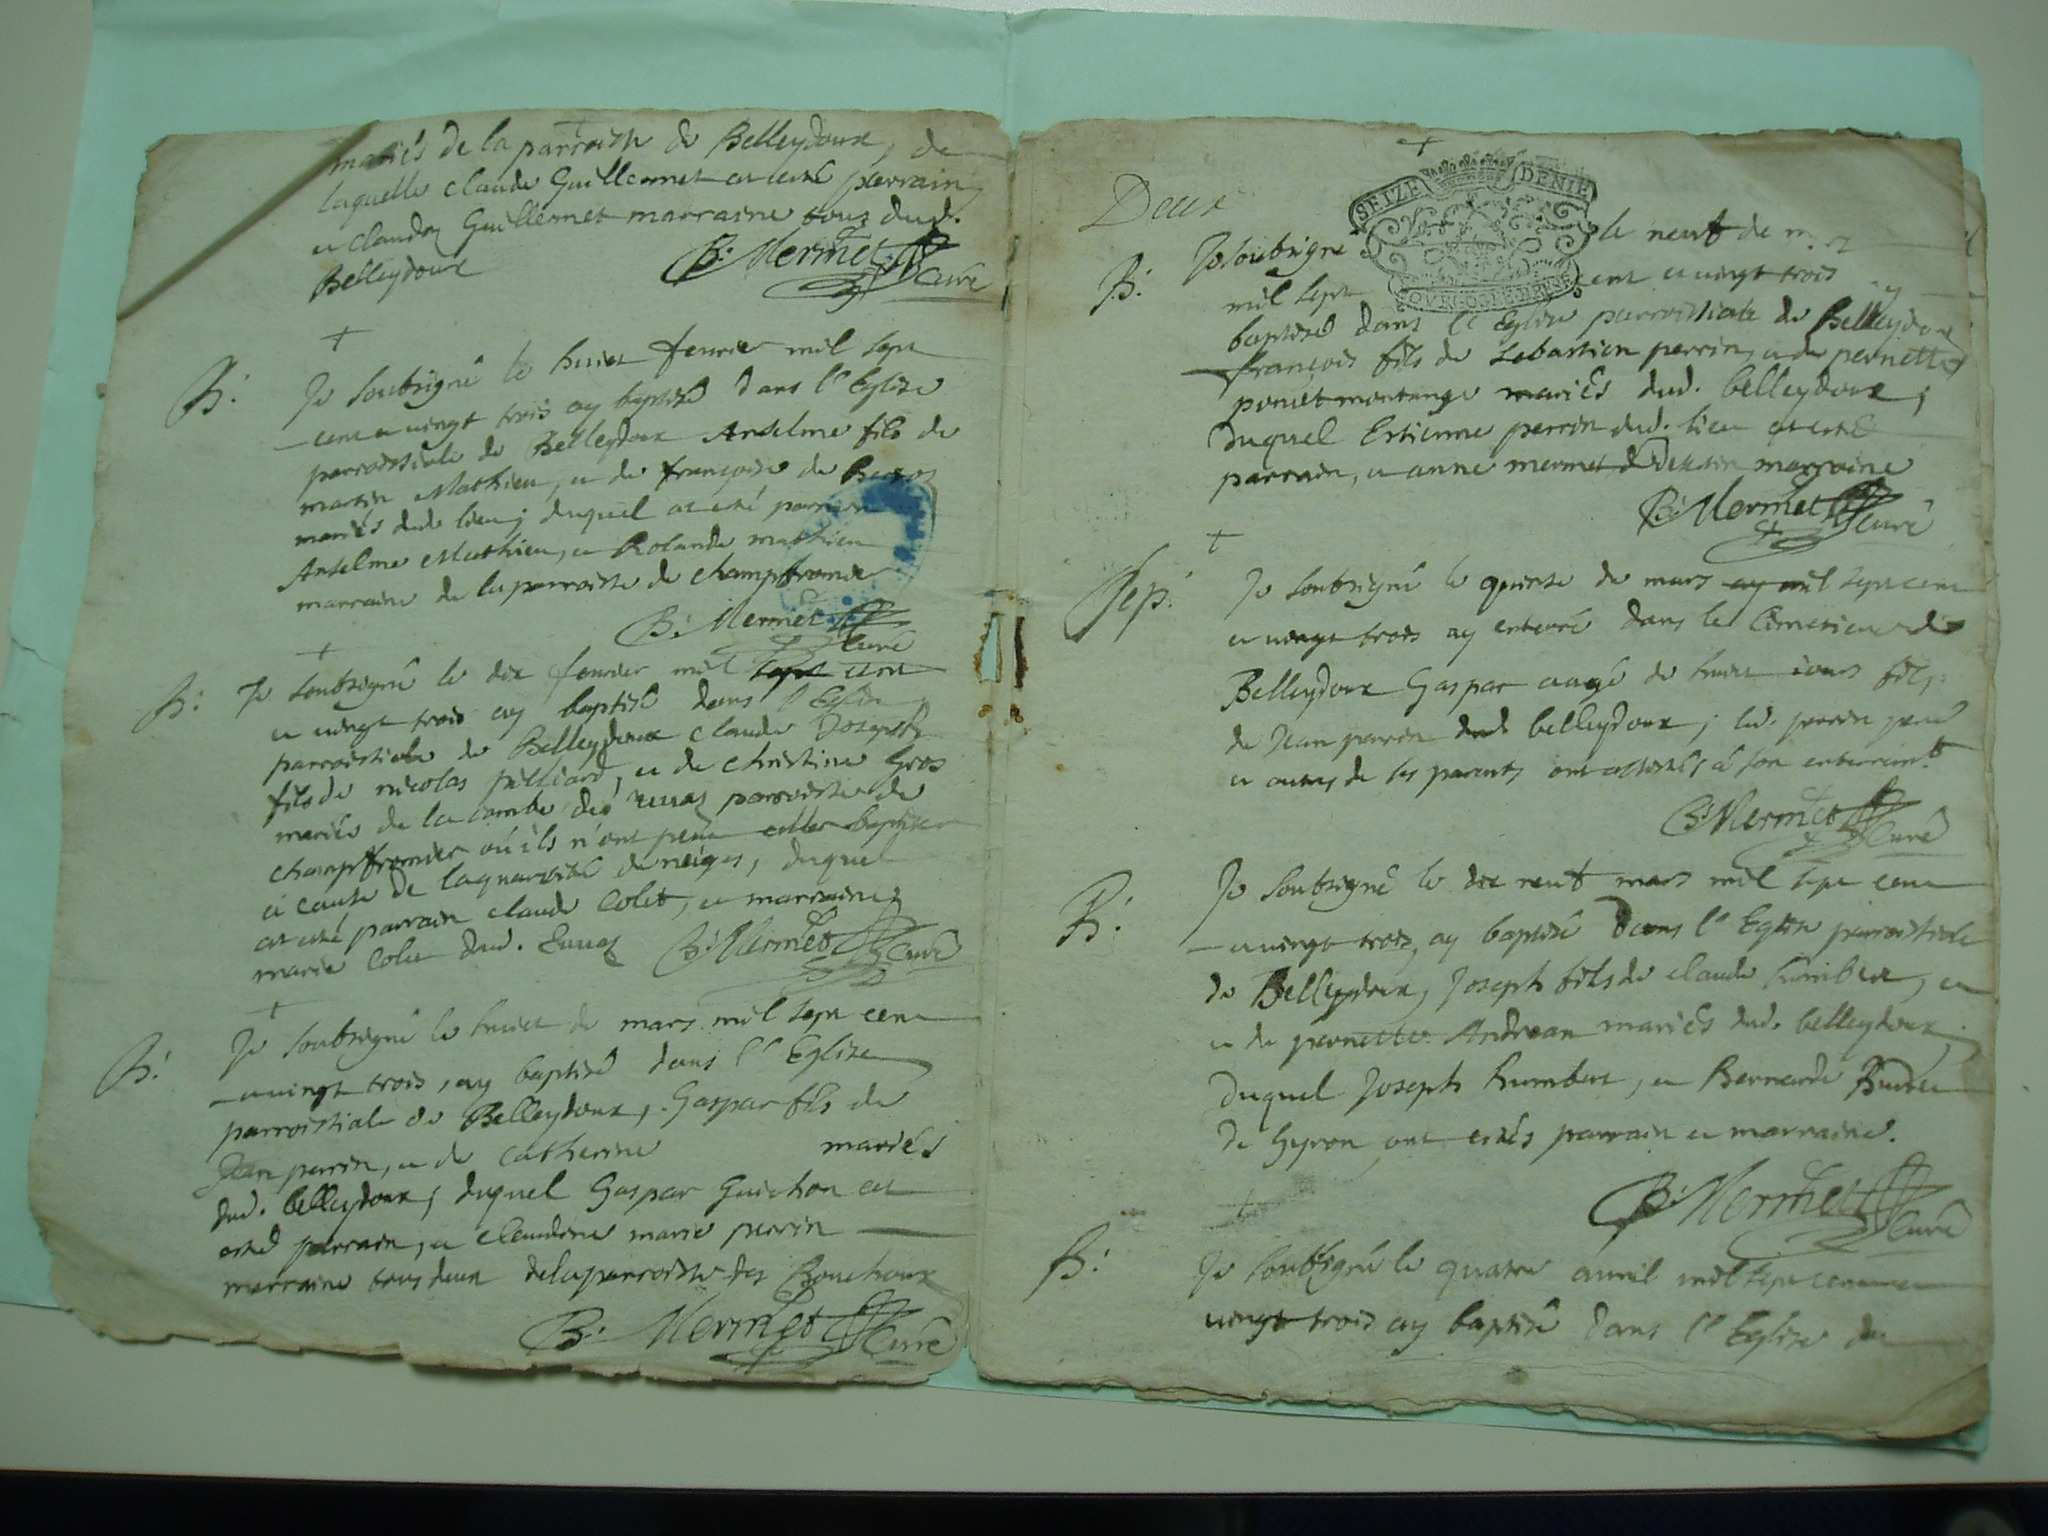 mariés de la parroisse de Belleydoux, de
laquelle claude Guillermet at esté parrain
et claudaz Guillermet marraine tous dud.
Belleydoux
B. Mermet Curé
B.
Je soubsigné le huict feurier mil sept
cent et uingt trois ay baptisé dans l'Eglise
parroissiale de Belleydoux Anselme fils de
martin Mathieu, et de françoise de
mariés dud. lieu; duquel at esté parrain
Anselme Mathieu, et Rolande mathieu
marraine de la parroisse de champfromier
B. Mermet Curé
B.
Je soubsigné le dix feurier mil sept cent
et uingt trois ay baptisé dans l'Eglise
parroissiale de Belleydoux claude Joseph
fils de nicolas pilliard, et de christine Gros
mariés de la combe parroisse de
champfromier où ils n'ont peu baptiser
à cause de la quantité de neiges, duquel
at esté parrain claude Colet, et marraine
marie Colet dud.
B. Mermet Curé
B.
Je soubsigné le huict de mars mil sept cent
et uingt trois, ay baptisé dans l'Eglise
parroissiale de Belleydoux, Gaspar fils de
Jean perrin, et de catherine mariés
dud. belleydoux, duquel Gaspar Guichon at
esté parrain, et claudine marie perrin
marraine tous deux de la parroisse des Bouchoux
B. Mermet Curé
SEIZE DENIE
Deux
B.
Je soubsigné le neuf de
mil sept cent et uingt trois ay
baptisé dans l'Eglise parroissiale de Belleydoux
françois fils de sebastien perrin, et de pernette
poncet montange mariés dud. belleydoux,
duquel Estienne perrin dud. lieu at esté
parrain, et anne mermet marraine
B. Mermet Curé
Sep.
Je soubsigné le quinse de mars ay mil sept cent
et uingt trois ay enterré dans le Cimetiere de
Belleydoux Gaspar aagé de huict iours fils
de Jean perrin dud. belleydoux; led. perrin pere
et autres de ses parents ont assistés à son enterremt
B. Mermet Curé
B.
Je soubsigné le dix neuf mars mil sept cent
et uingt trois, ay baptisé dans l'Eglise parroissiale
de Belleydoux, Joseph fils de claude humbert, et
et de pernette Andrean mariés dud. belleydoux,
duquel Joseph humbert, et Bernarde
de Gyron ont estés parrain et marraine.
B. Mermet Curé
B.
Je soubsigné le quatre auril mil sept cent et
uingt trois ay baptisé dans l'Eglise de